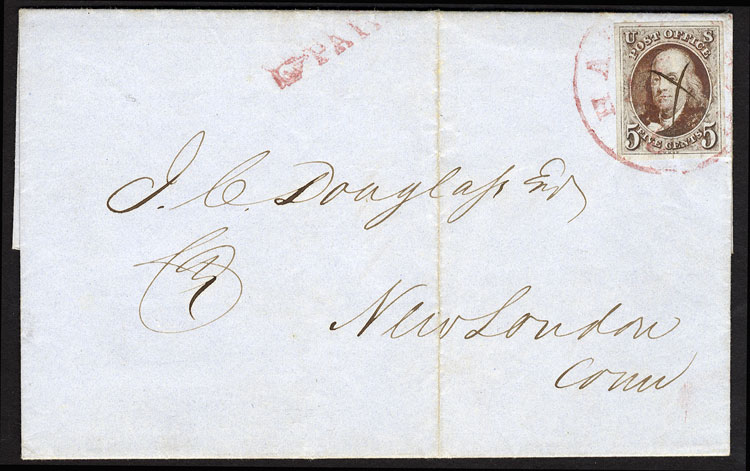 PAI
HA
U S
POST OFFICE
5 FIVE CENTS 5
J. C. Douglass Esq
New London
Conn